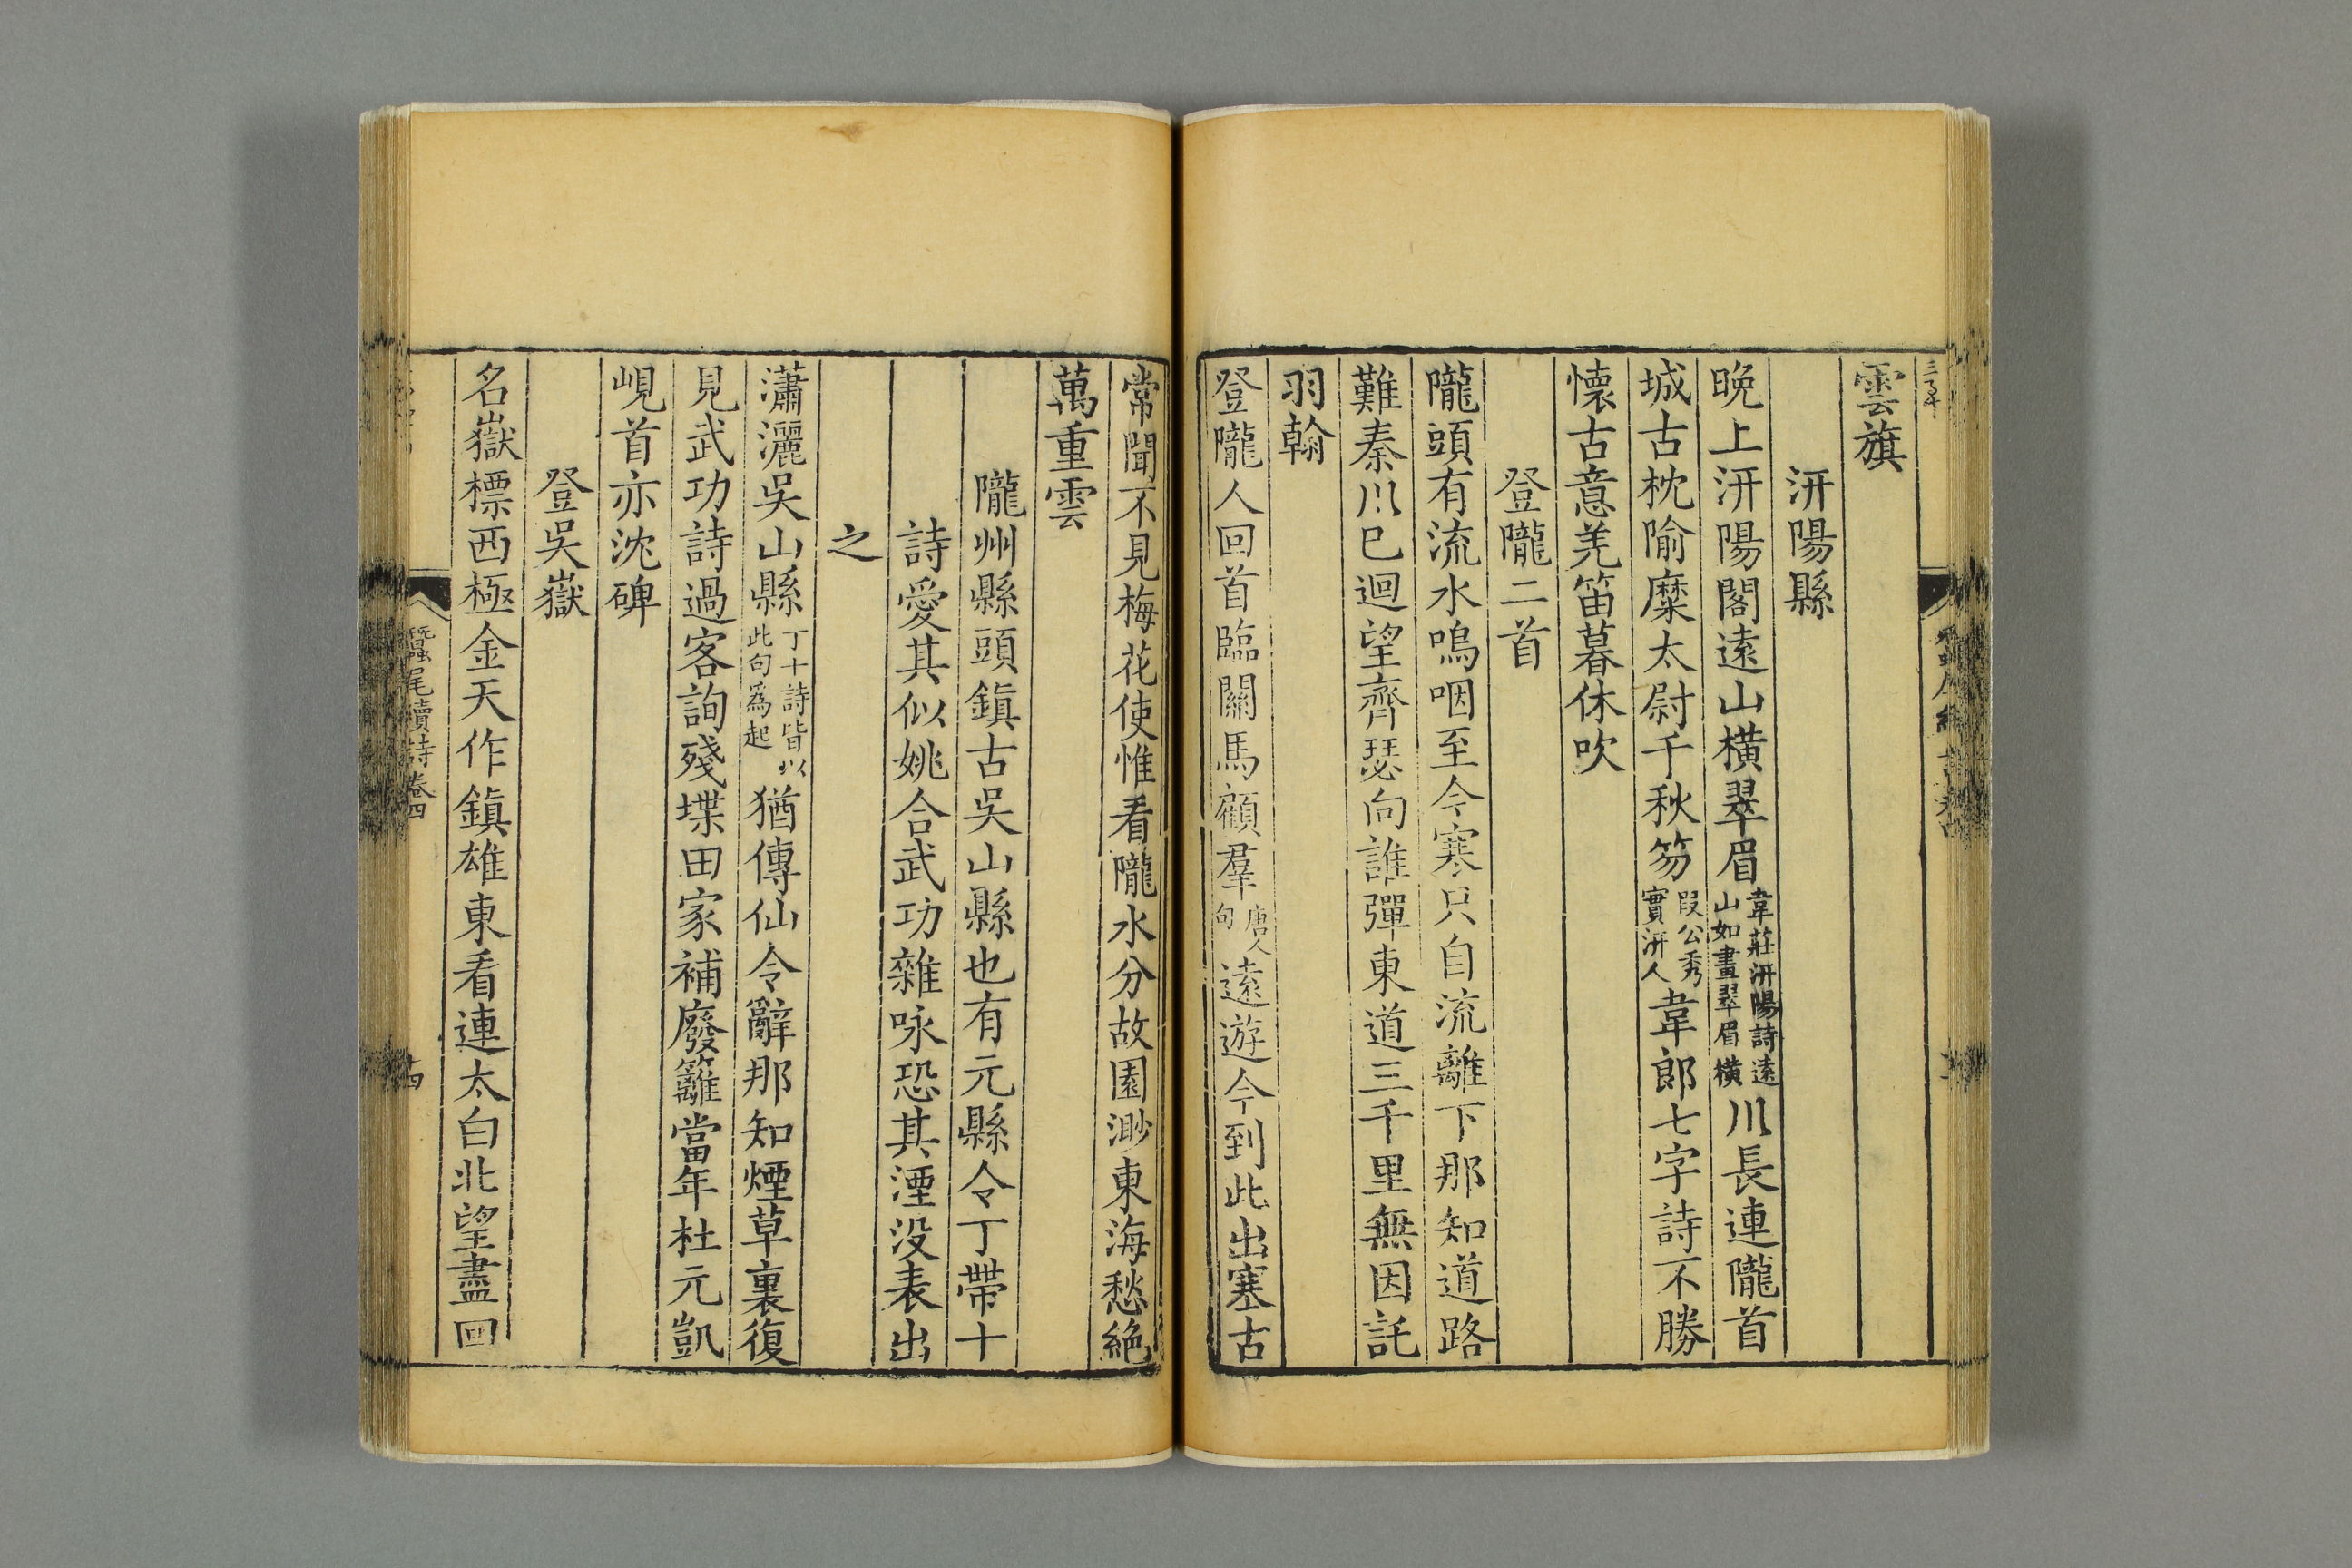 雲旗
汧陽縣
晚上汧陽閣遠山橫翠眉韋莊汧陽詩遠山如畫翠眉橫川長連隴首
城古枕隃糜太尉千秋笏段公秀實汧人韋郎七字詩不勝
懷古意羌笛暮休吹
登隴二首
隴頭有流水嗚咽至今寒只自流離下那知道路
難秦川已迴望齊瑟向誰彈東道三千里無因託
羽翰
登隴人回首臨關馬顧羣唐人句遠遊今到此出塞古
常聞不見梅花使惟看隴水分故園渺東海愁絕
萬重雲
隴州縣頭鎮古吳山縣也有元縣令丁帶十
詩愛其似姚合武功雜咏恐其湮没表出
之
瀟灑吳山縣丁十詩皆以此句爲起猶傳仙令辭那知煙草裏復
見武功詩過客詢殘堞田家補廢籬當年杜元凱
峴首亦沈碑
登吳嶽
名嶽標西極金天作鎮雄東看連太白北望盡回
蠶尾續詩卷四
十四